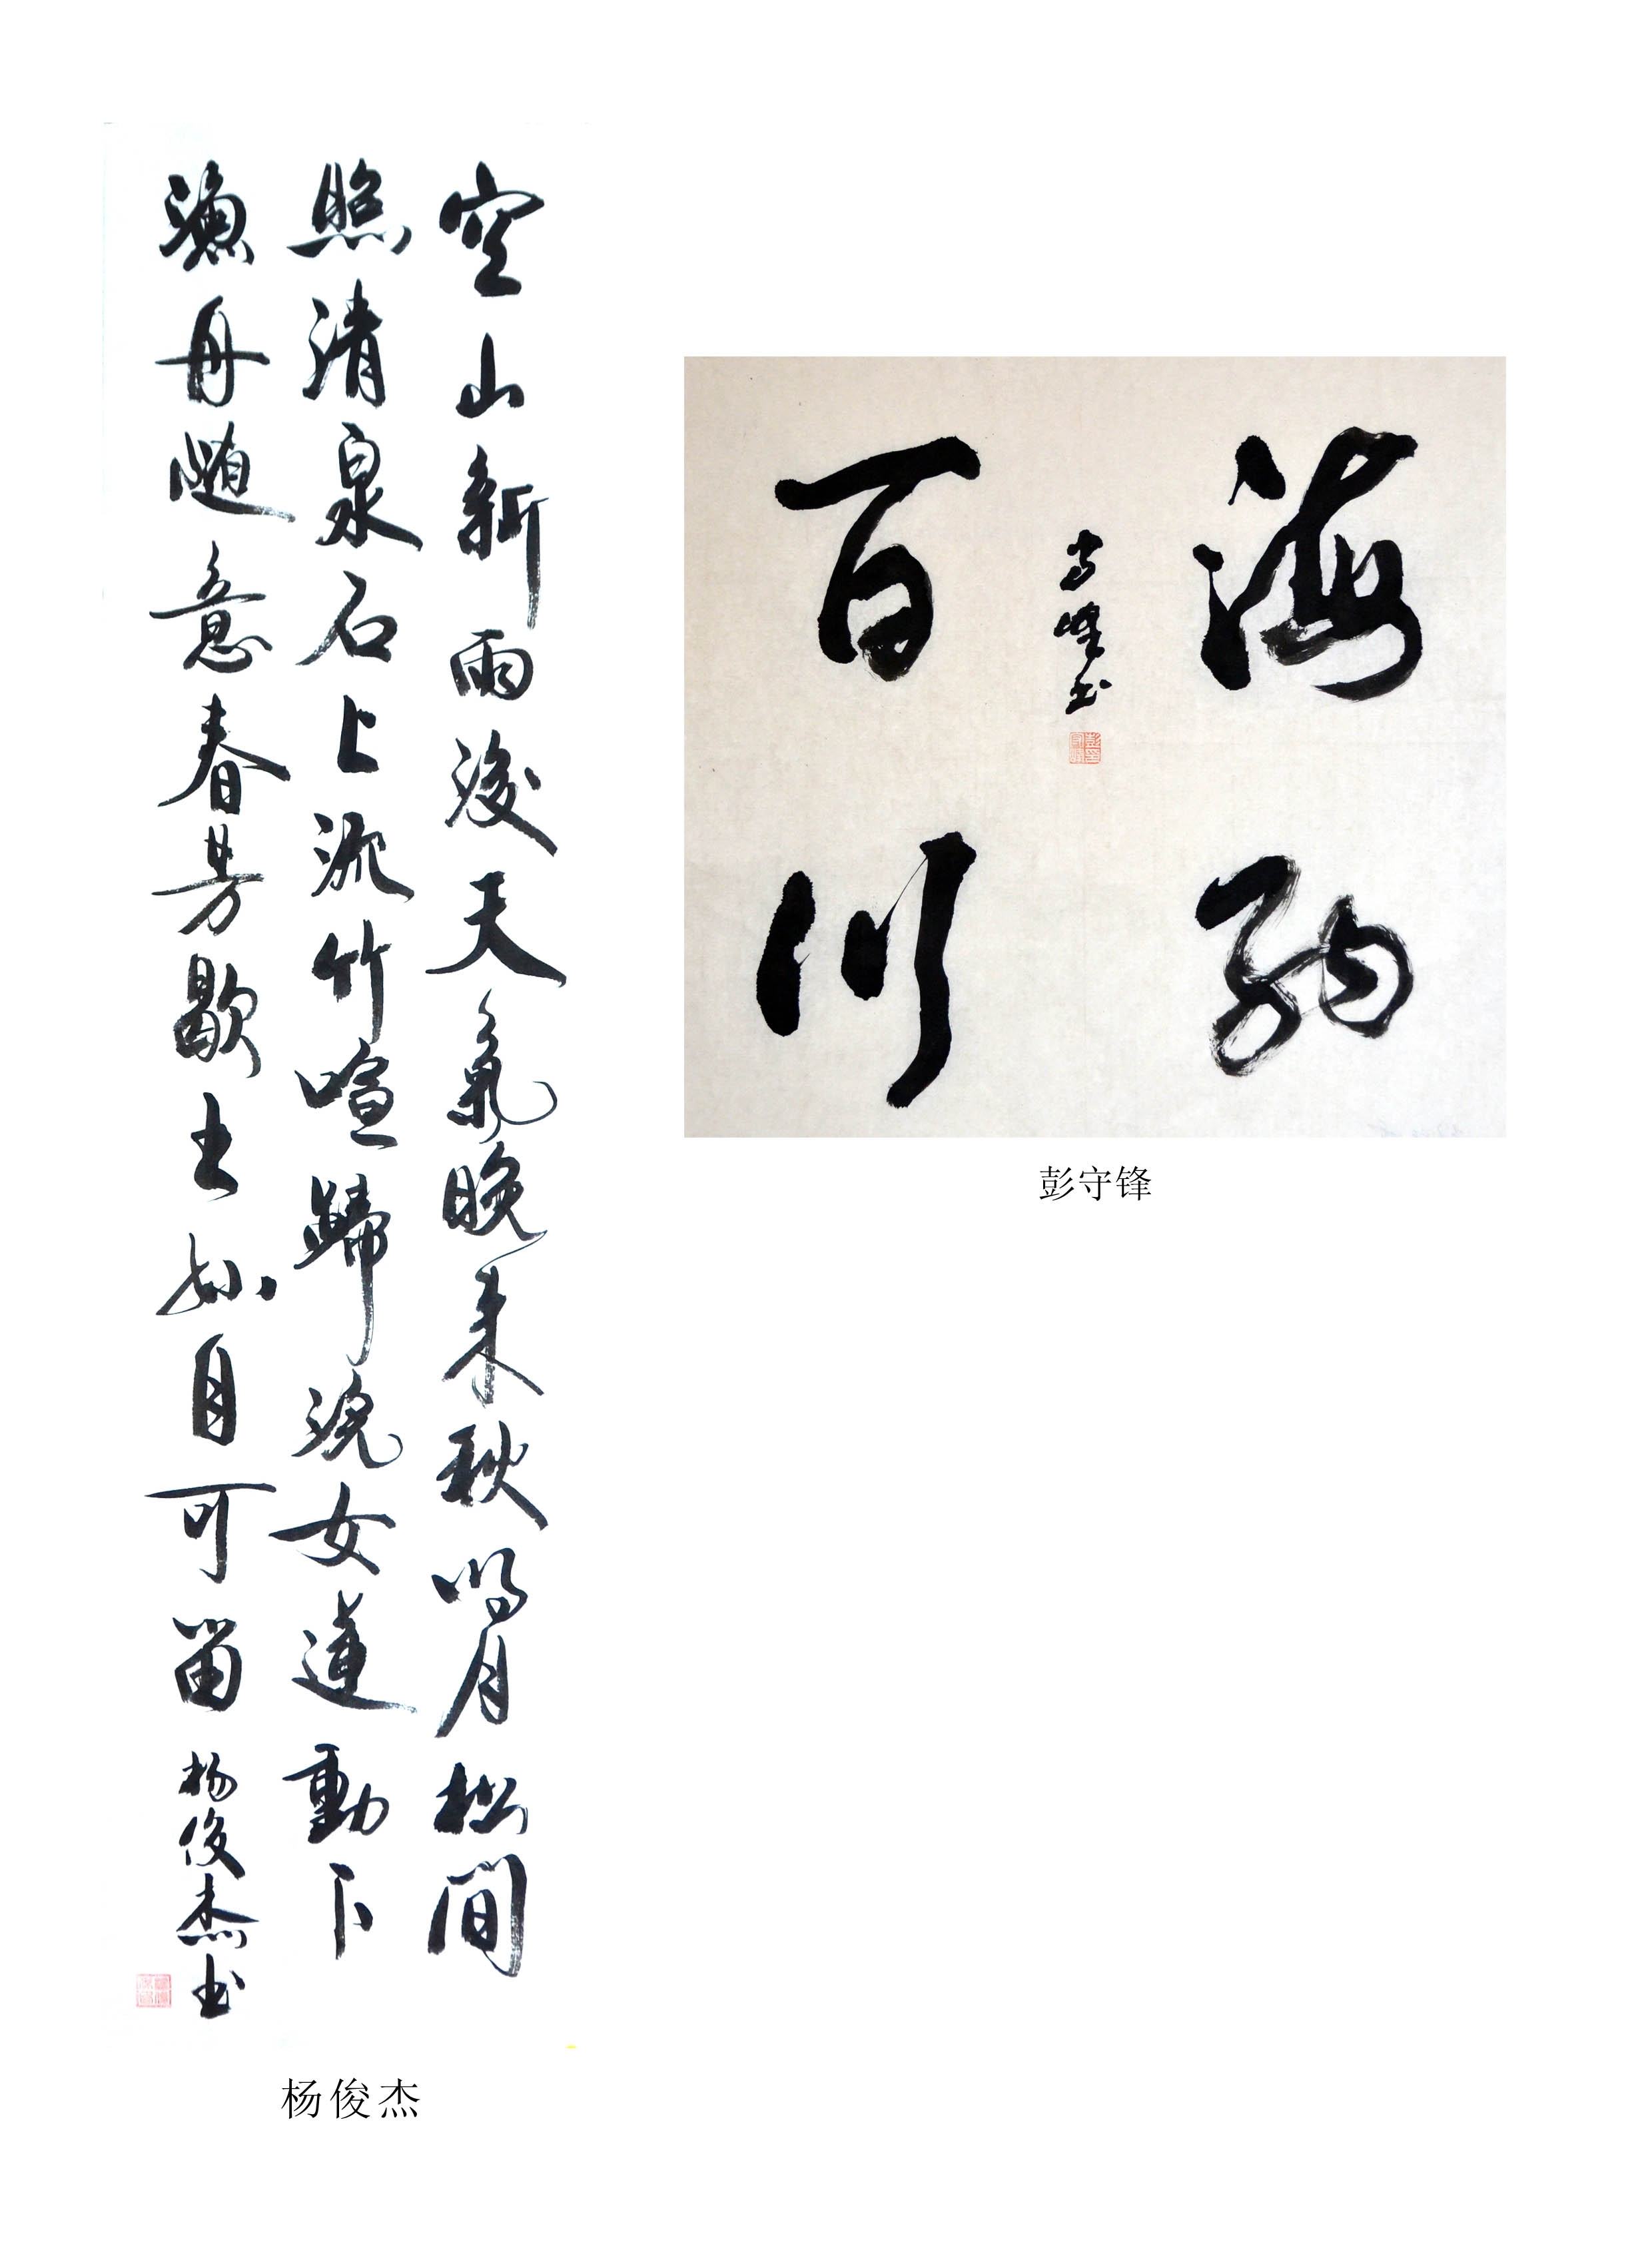 空山新雨後天氣晚来秋明月松間
照清泉石上流竹喧歸浣女蓮動下
漁舟随意春芳歇王孙自可留
杨俊杰书
杨俊杰
海纳
百川
守峰书
彭守锋